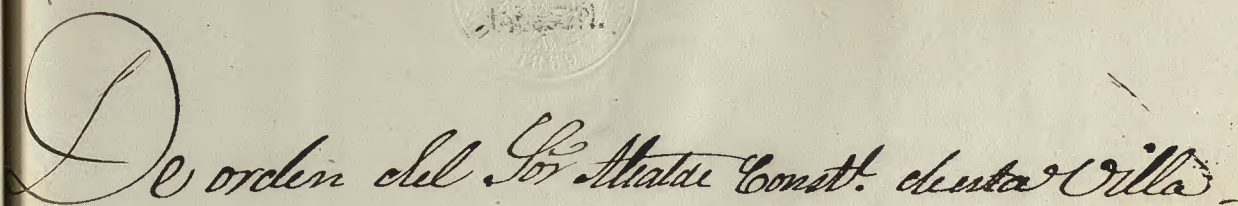 De orden del Sor Alcalde Constl. de esta Villa